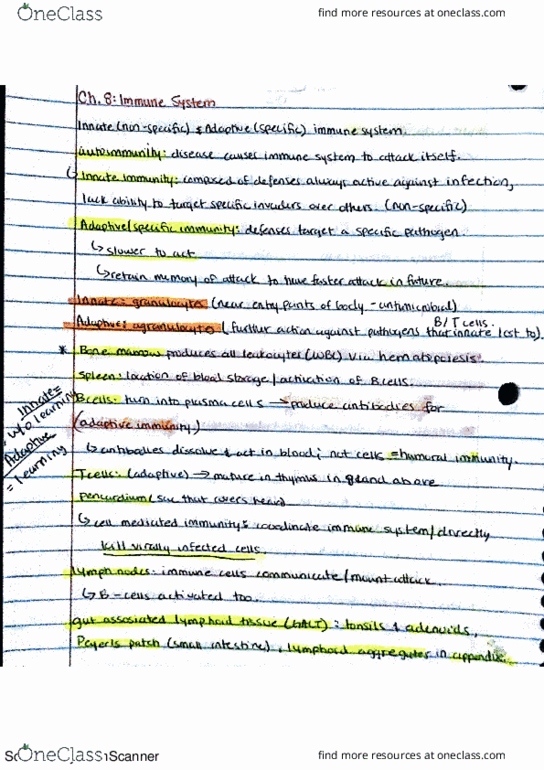 OneClass
find more resources at oneclass.com
Ch. 8: Immune System
Innate (non-specific) & Adaptive (specific) immune system.
autoimmunity: disease causes immune system to attack itself.
↳ Innate immunity: composed of defenses always active against infection,
lack ability to target specific invaders over others. (non-specific)
Adaptive/specific immunity: defenses target a specific pathogen.
↳ slower to act
↳ retain memory of attack to have faster attack in future.
Innate: granulocytes (near entry points of body - antimicrobial)
B/T cells.
Adaptive: agranulocytes (further action against pathogens that innate lost to).
* Bone marrow produces all leukocytes (WBC) via hematopoiesis.
Spleen: location of blood storage/activation of B cells.
Innate =
w/o learning
Adaptive
= learning
B cells: turn into plasma cells → produce antibodies for
(adaptive immunity.)
↳ antibodies dissolve & act in blood; not cells = humoral immunity.
T cells: (adaptive) → mature in thymus in gland above
pericardium (sac that covers heart)
↳ cell mediated immunity: coordinate immune system/directly
kill virally infected cells.
Lymph nodes: immune cells communicate/mount attack.
↳ B-cells activated too.
gut associated lymphoid tissue (GALT): tonsils & adenoids,
Peyer's patch (small intestine), lymphoid aggregates in appendix.
OneClass
Scanner
find more resources at oneclass.com